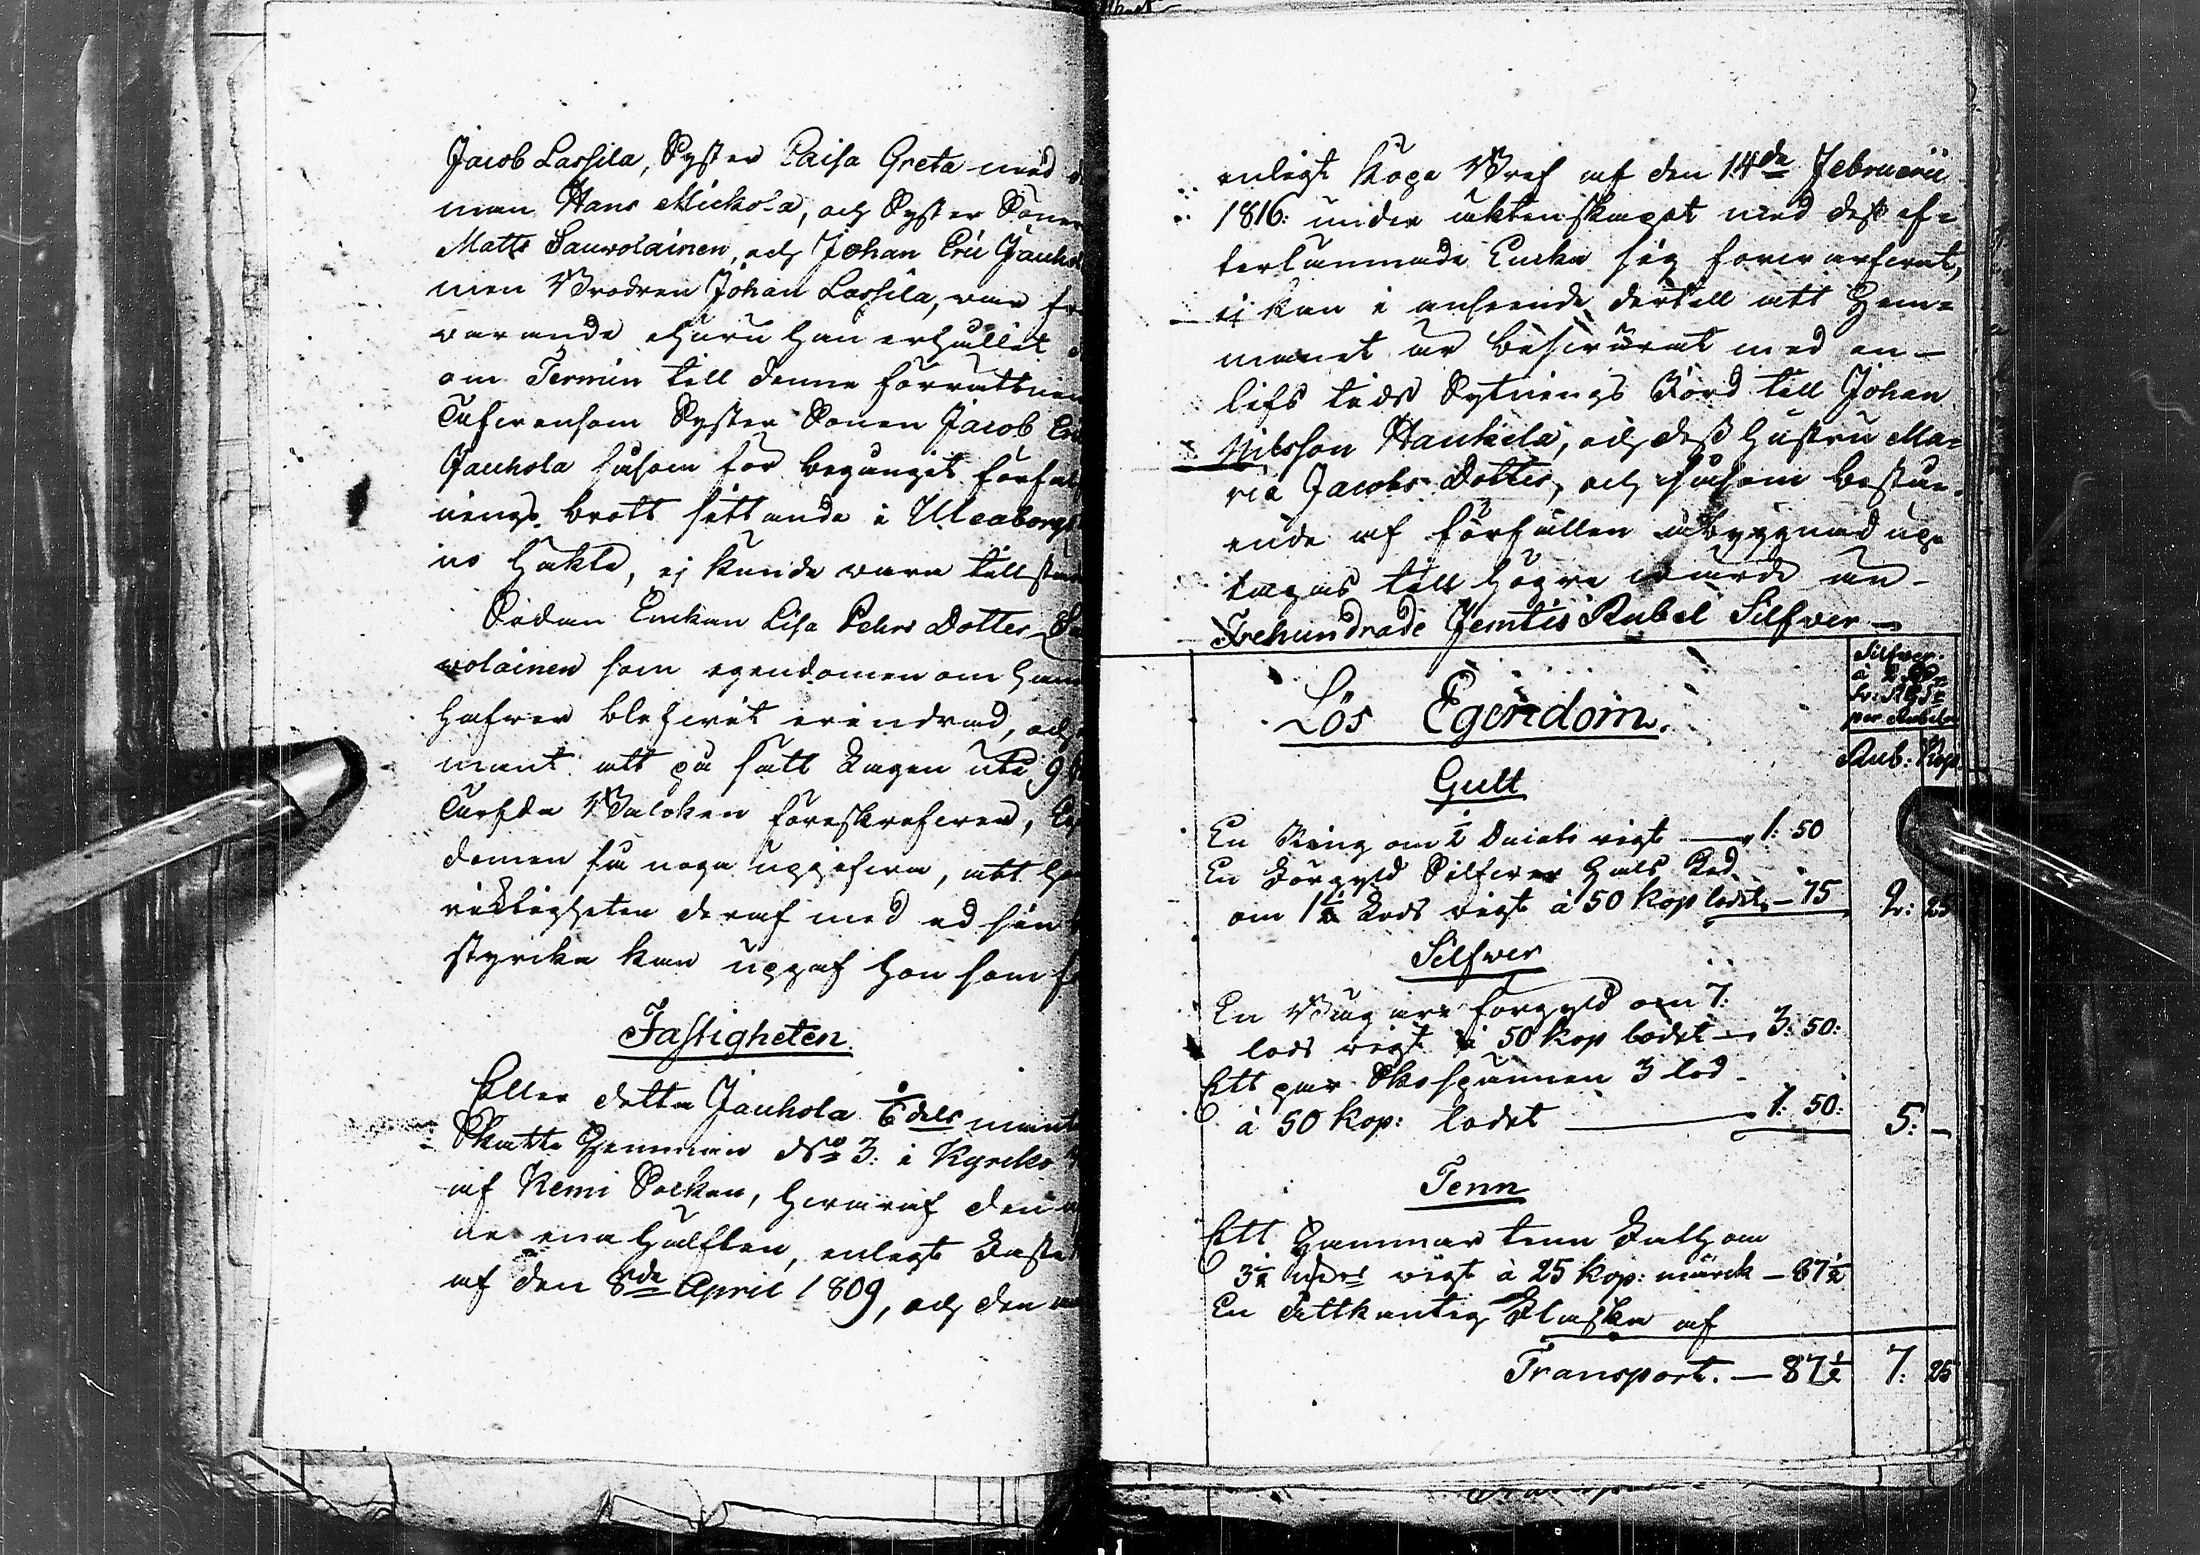 Jacob Lassila, Syster Caisa Greta med
man Hans Mickola, och Syster Söner
Matts Sauwolainen, och Johan Eric Jauhol
men Brodren Johan Lassila, war
warande ehuru han erhållit
om Termin till denne förrättnin
Äfwensom Syster Sonen Jacob Eri
Jauhola såsom för begånget förfal
nings brott sittande i Uleaborgs
ns häkte, ej kunde wara tillstä
Sedan Enkan Lisa Pehrs Dotter Sa
wolainen som egendomen om hän
hafwer blefwit erindrad, och
mant att på sätt Lagen uti 9
Ärfda Balcken föreskrifwer, Eg
domen så noga uppgifwa, att ho
ricktigheten deraf med ed sin
styrcka kan uppgaf hon som fö
Fastigheten
Eller detta Jauhola 1/6 dels mant
Skatte Hemman No 3: i Kyrcko
af Kemi Socken, hwaraf den
ne ena hälften, enligt Faste
af den 8de April 1809, och den an
enligt Köpe Bref af den 14de Februarii
1816: under äktenskapet med dess ef=
terlämnade Encka sig förwärfwat,
ej kan i anseende dertill att Hem=
manet är beswärat med en
lifs tids Sytnings Börd till Johan
Nilsson Hankela, och dess hustru Ma=
ria Jacobs Dotter, och såsom bestå=
ende af förfallen åbyggnad up
tagas till högre wärde än
Trehundrade Femtio Rubel Silfwer
Silfwer
per Rubeln
Lös Egendom.
Rub: Kop:
Gull
En Ring om 1/2 Ducats wigt — 1: 50
En Förgyld Silfwer Hals Ked
om 1 1/2 Lods wigt à 50 Kop lodet — 75 2: 25
Silfwer
En Bägare förgyld om 7:
lods wigt à 50 Kop lodet — 3: 50:
Ett par Skospännen 3 lod
à 50 Kop: lodet — 1: 50: 5: —
Tenn
Ett Hammar tenn Fath om
3 1/2 wigt à 25 Kop: marck — 87 1/2
En Åttkantig Flaska af
Transport. — 87 1/2 7: 25